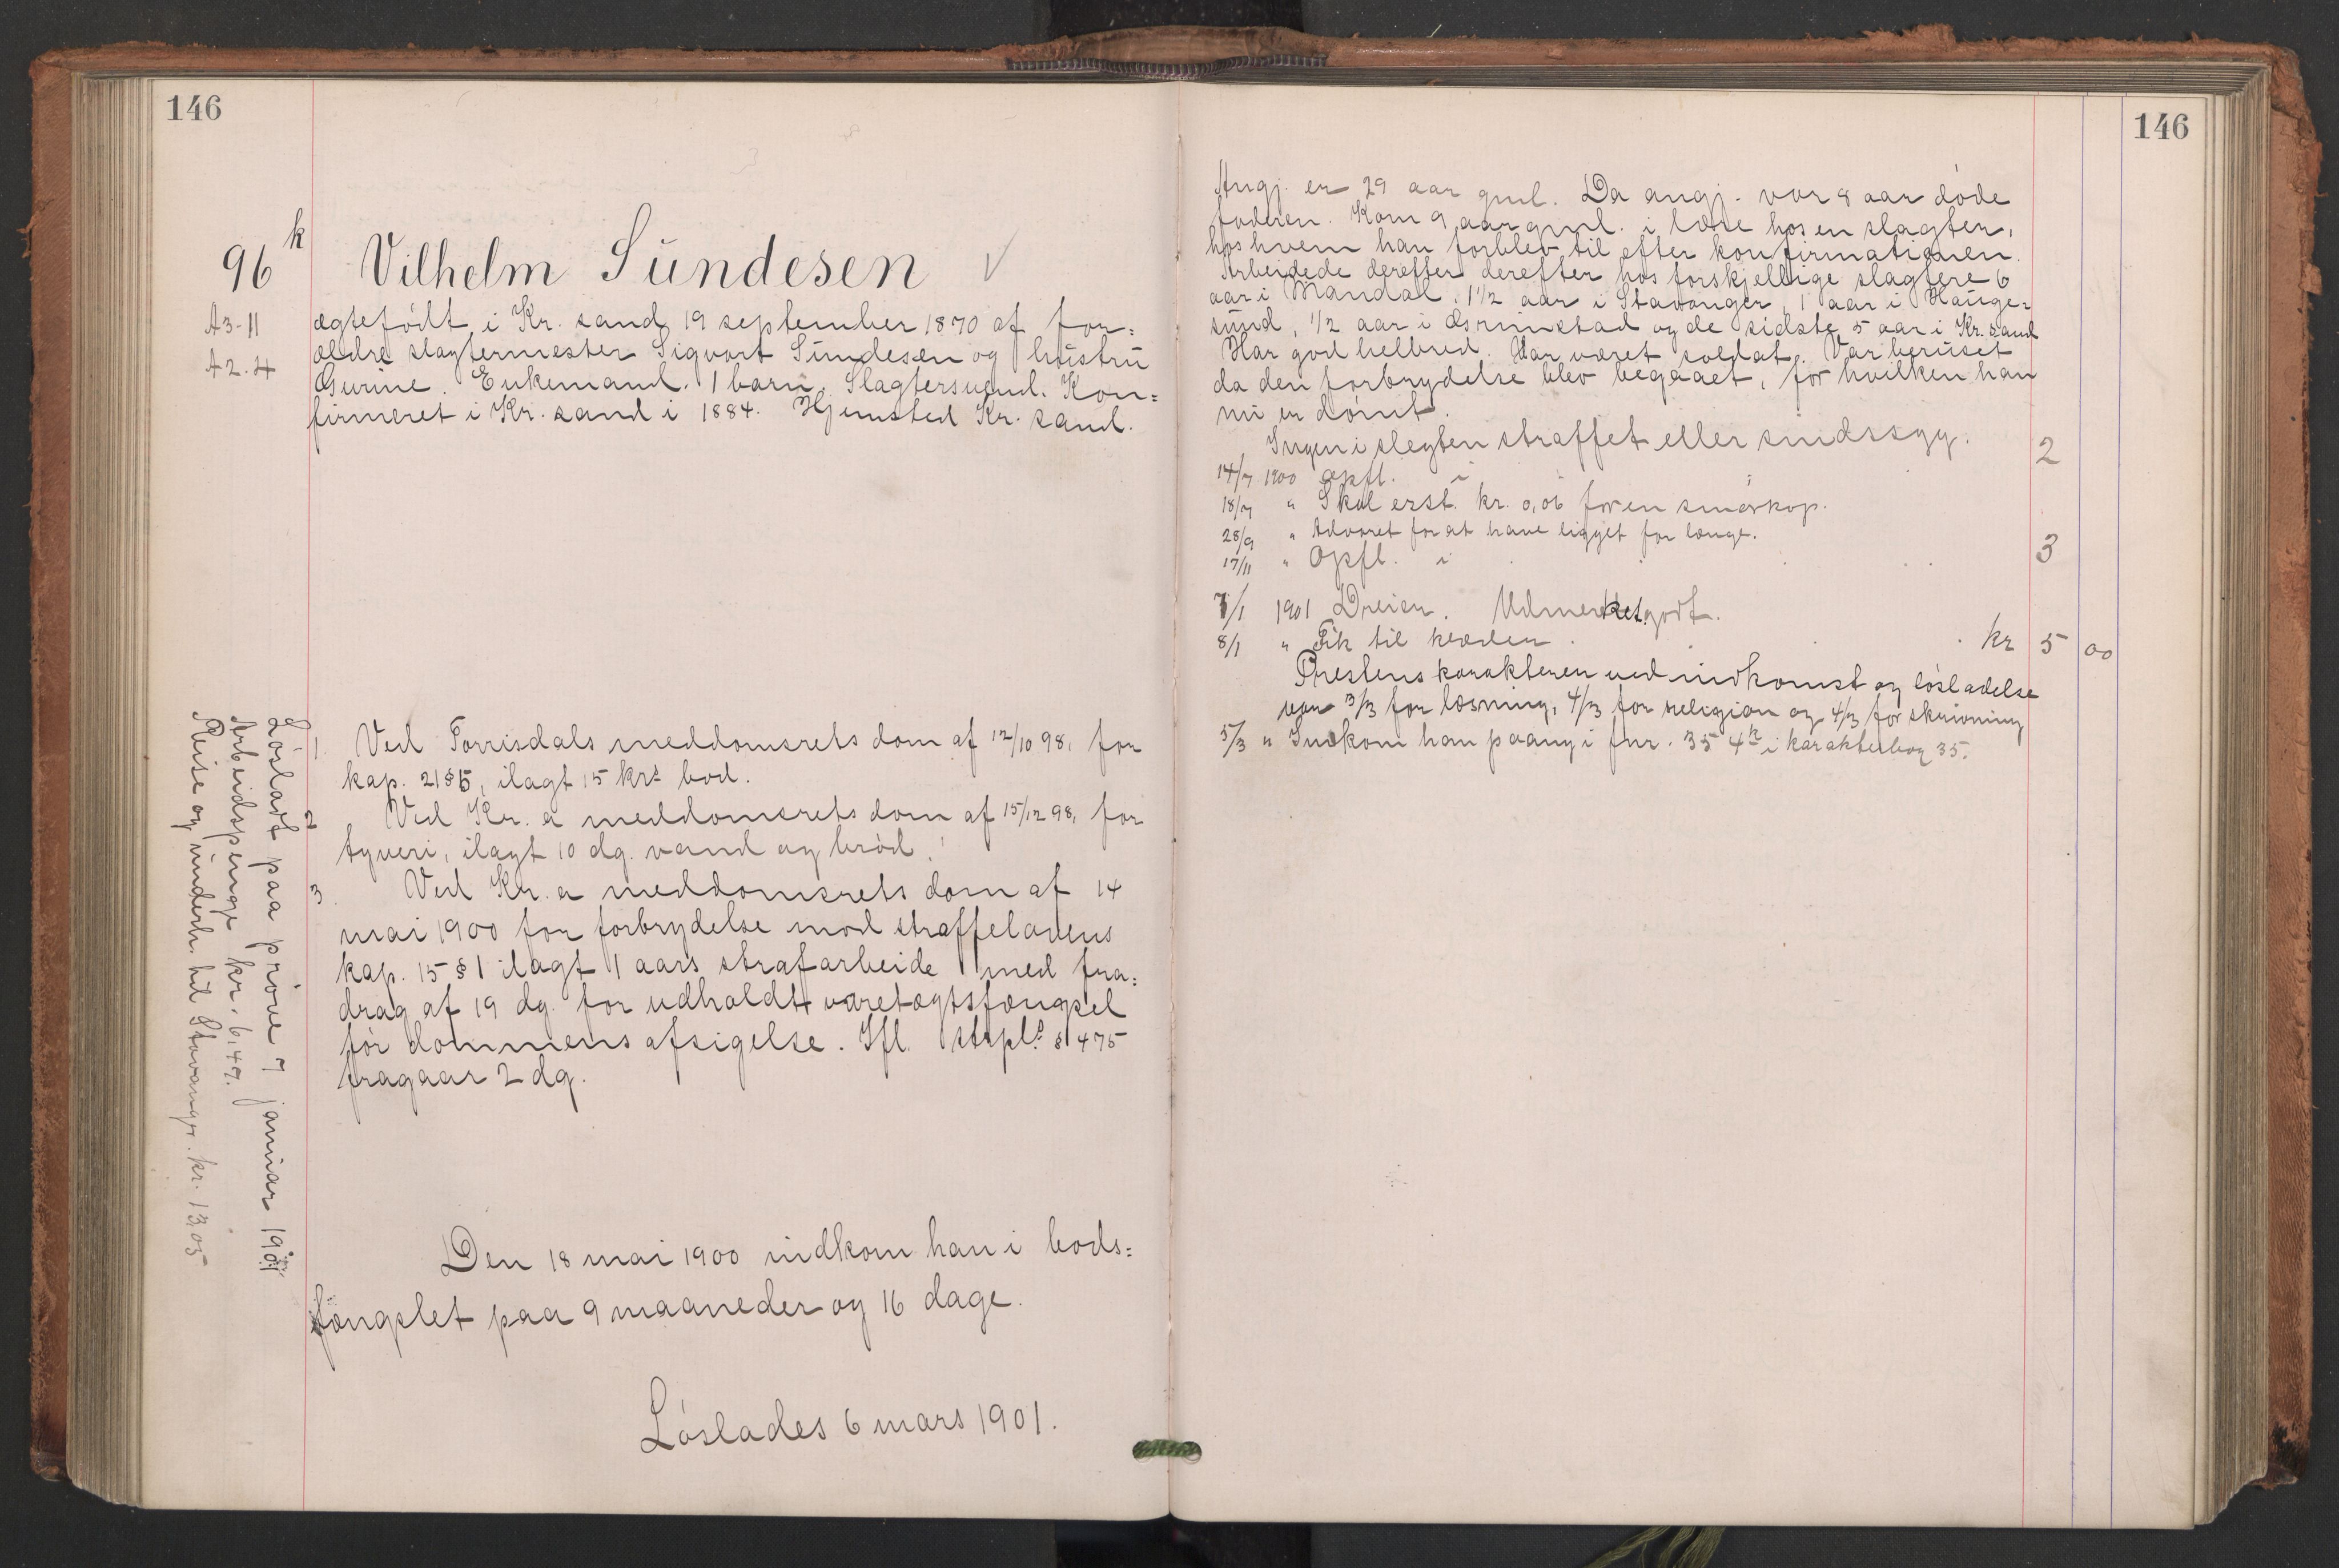 146
96 k
Vilhelm Sündesen √
A3-11
A2.4
ægtefødt i Kr. sand 19 september 1870 af for=
ældre slagtermester Sigvart Sündesen og hüstrü
Gurine. Enkemand. 1 barn. Slagtersvend. Kon=
firmeret i Kr. sand i 1884. Hjemsted Kr. sand.
1 Ved Torrisdals meddomsrets dom af 12/10 98, for
kap. 21 § 5, ilagt 15 krs bod.
2 Ved Kr. a meddomsrets dom af 15/12 98, for
tyveri, ilagt 10 dg. vand og brød.
3 Ved Kr. a meddomsrets dom af 14
mai 1900 for forbrydelse mod straffelovens
kap. 15 § 1 ilagt 1 aars strafarbeide med fra=
drag af 19 dg. for udholdt varetægtsfængsel
før dommens afsigelse. Ifl. strpl. § 475
fragaar 2 dg.
Den 18 mai 1900 indkom han i bods=
fængslet paa 9 maaneder og 16 dage.
Løslades 6 mars 1901.
Løsladt paa prøve 7 januar 1901
Arbeidspenge kr. 6,47.
Reise og underh. til Stavanger kr. 13,05
146
Angj. er 29 aar gml. Da angj. var 8 aar døde
faderen. Kom 9 aar gml. i lære hos en slagter,
hos hvem han forblev til efter konfirmationen.
Arbeidede derefter derefter hos forskjellige slagtere 6
aar i Mandal, 1 1/2 aar i Stavanger, 1 aar i Hauge=
sünd, 1/2 aar i Grimstad og de sidste 5 aar i Kr. sand
Har god helbred. Har været soldat. Var berüset
da den forbrydelse blev begaaet, for hvilken han
nü er dømt.
Ingen i slegten straffet eller sindssyg.
14/7 1900 opfl. i 2
18/7 " Skal erst. kr. 0,06 for en smørkop.
28/9 " Advaret for at have ligget for længe.
17/11 " Opfl. i 3
7/1 1901 Dreier. Udmerket godt.
8/1 " Fik til klæder kr 5 00
Prestens karakterer ved indkomst og løsladelse
var 3/3 for læsning, 4/3 for religion og 4/3 for skrivning
5/3 " Indkom han paany i fnr. 35 4k i karakterbog 35.